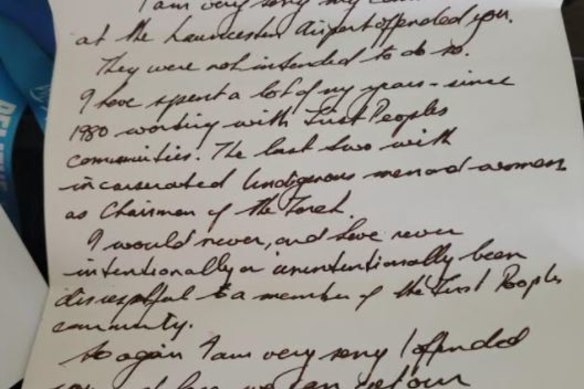 I am very sorry my
at the Launceston Airport offended you.
They were not intended to do so.
I have spent a lot of my years - since
1980 working with First Peoples
communities. The last two with
incarserated Indigenous men and women
as Chairman of the Torch.
I would never, and have never
intentionally or unintentionally been
disrespectful to a member of the First Peoples
community.
So again I am very sorry I offended
you